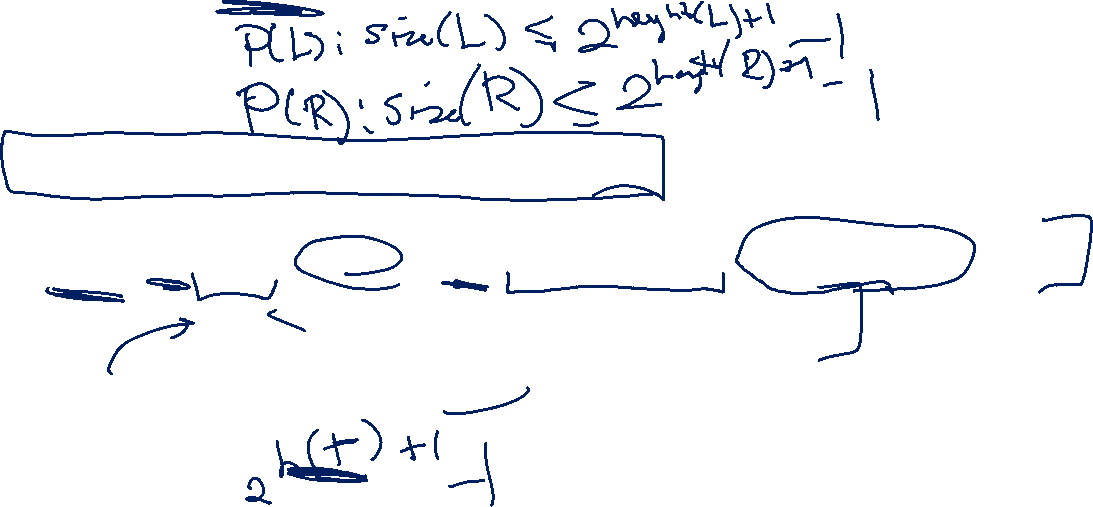 P(L): size(L) ≤ 2^height(L)+1 -1
P(R): size(R) ≤ 2^height(R)+1 -1
2^h(T)+1 -1